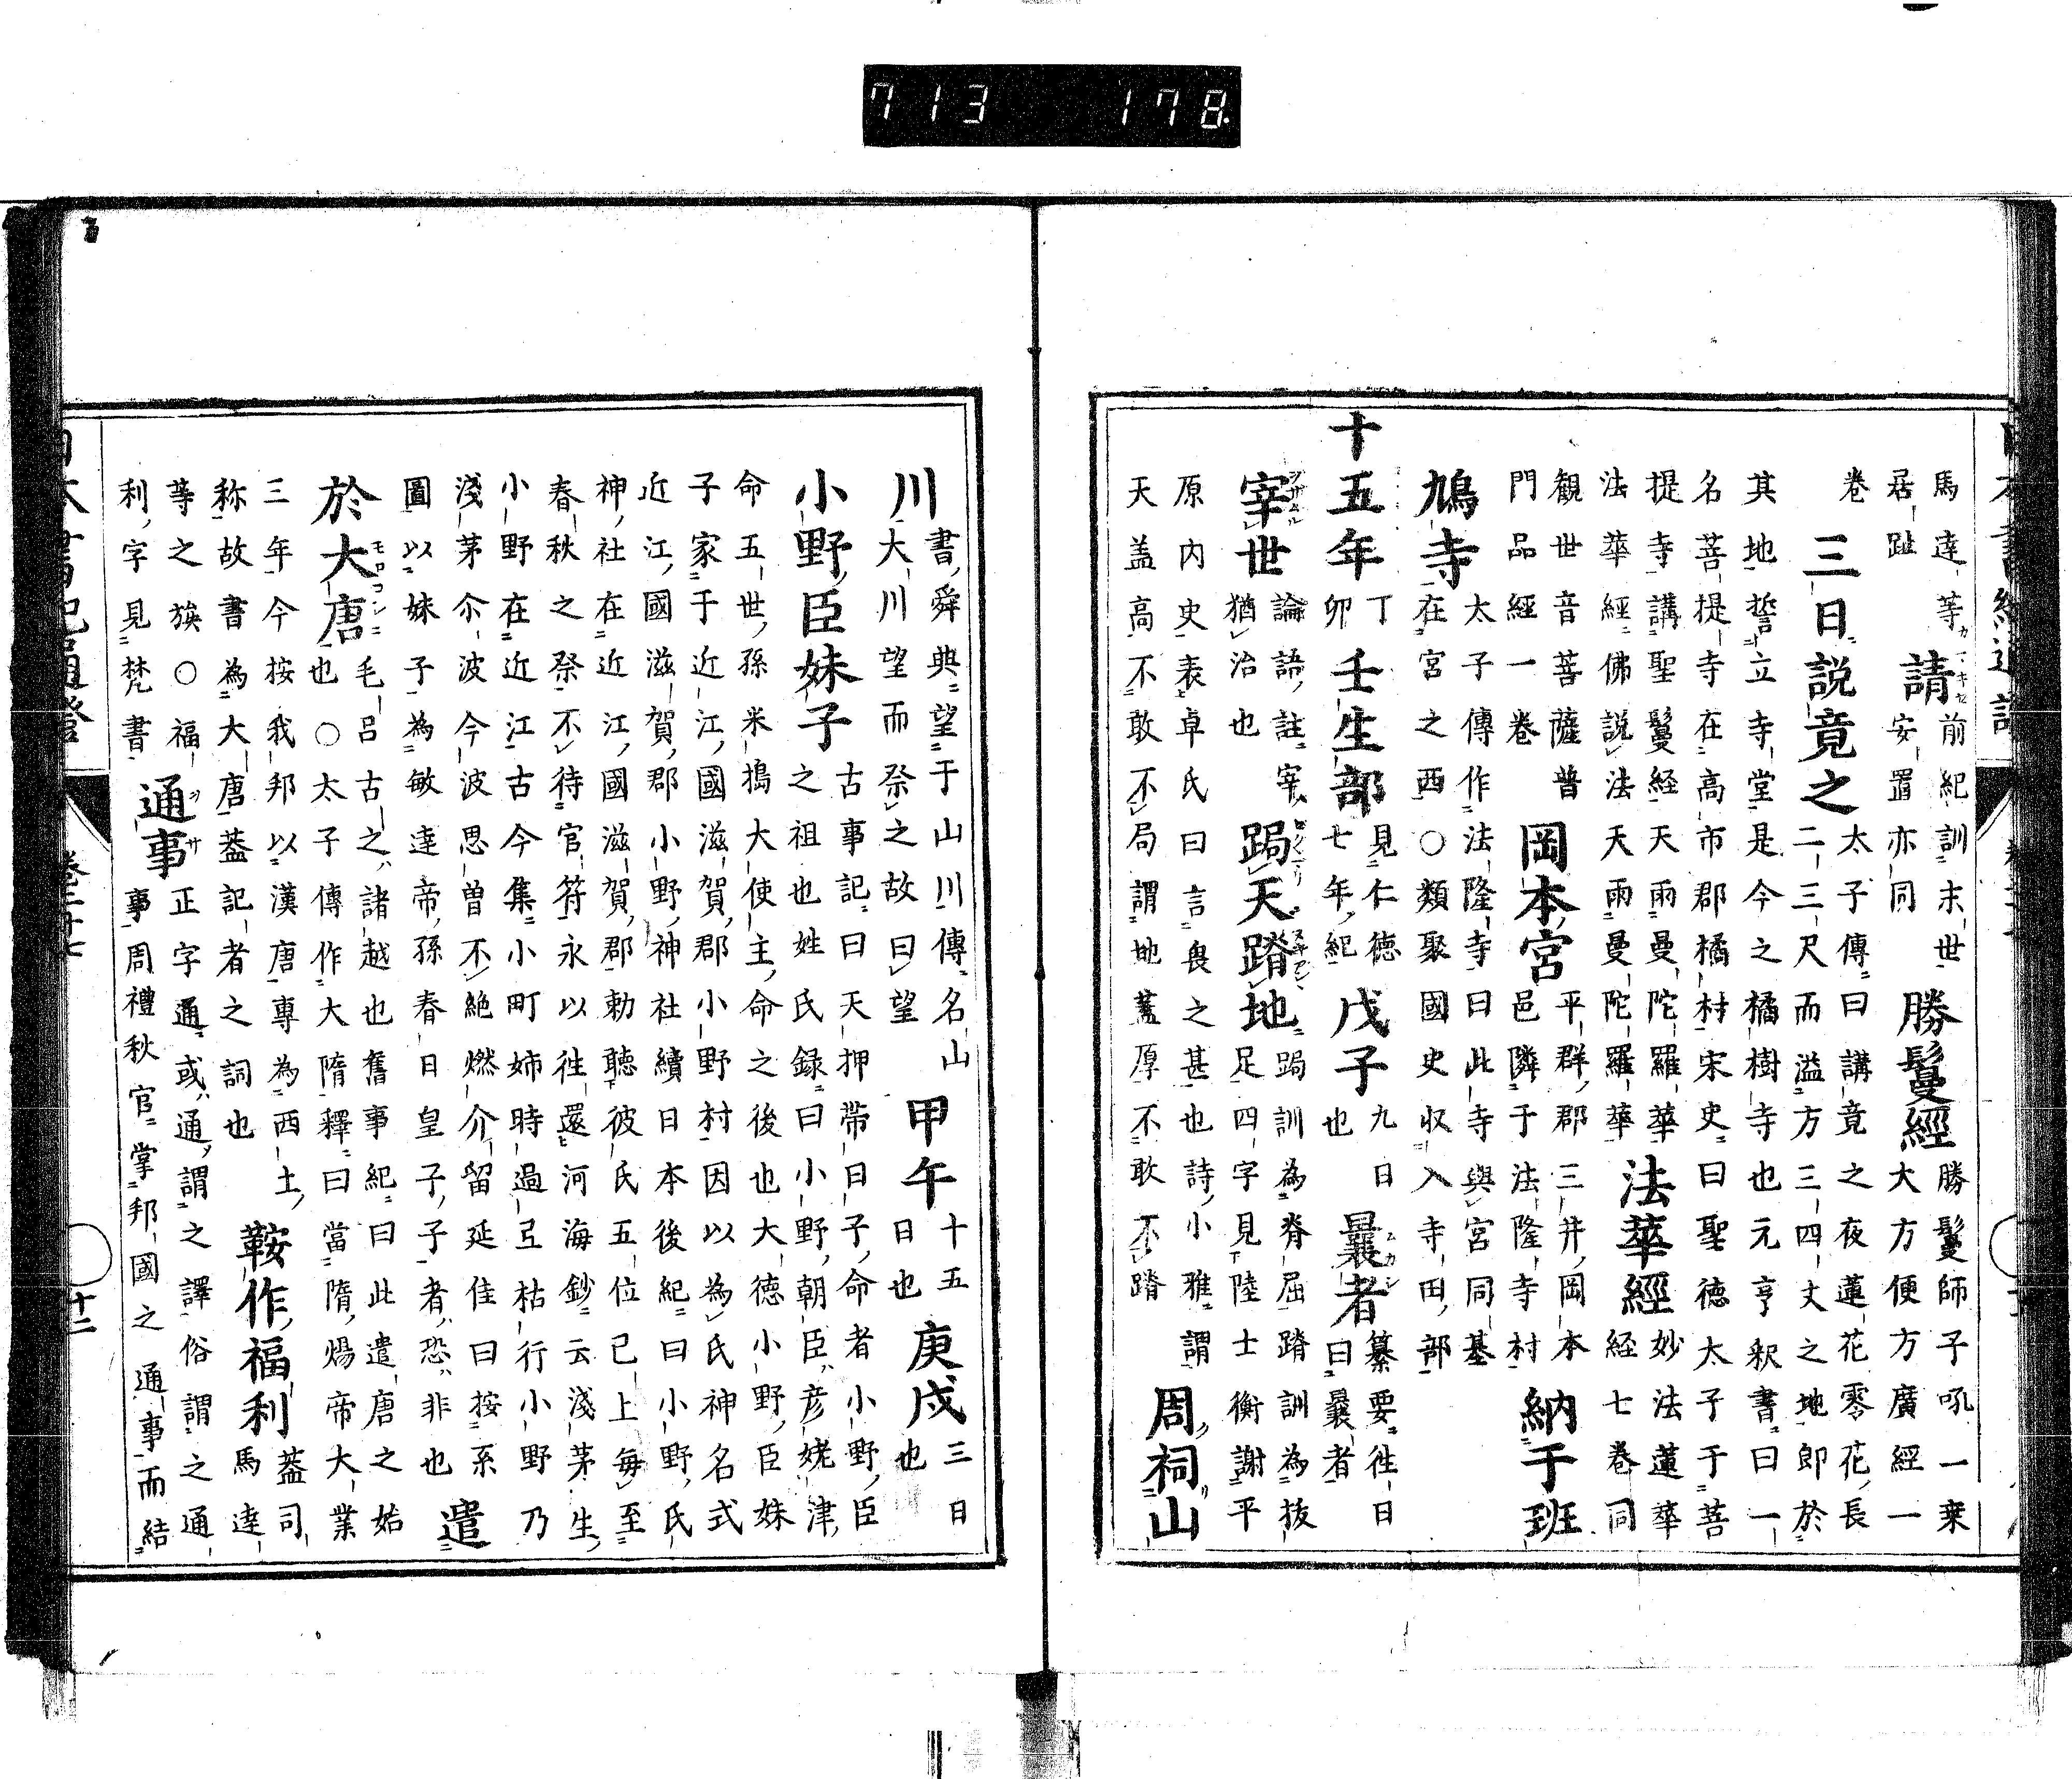 馬達等
居趾
請
前紀訓末世
安置亦同
勝鬘經
勝鬘師子吼一乗
大方便方廣經一
卷
三日説竟之
太子傳曰講竟之夜蓮花零花長
二三尺而溢方三四丈之地即於
其地誓立寺堂是今之橘樹寺也元亨釈書曰一
名菩提寺在高市郡橘村宋史曰聖徳太子于菩
提寺講聖鬘経天雨曼陀羅華
法華經佛説法天雨曼陀羅華
法華經
妙法蓮華
経七卷同
観世音菩薩普
門品經一卷
岡本宮
平群郡三井岡本
邑隣于法隆寺村
納于班
鳩寺
太子傳作法隆寺曰此寺與宮同基
在宮之西○類聚國史収入寺田部
十五年
丁
卯
壬生部
見仁徳
七年紀
戊子
九日
也
曩者
纂要往日
曰曩者
宰世
論語註宰
猶治也
跼天蹐地
跼訓為脊屈蹐訓為抜
足四字見陸士衡謝平
原内史表卓氏曰言畏之甚也詩小雅謂
天盖高不敢不局謂地蓋厚不敢不蹐
周祠山
川
書舜典望于山川傳名山
大川望而祭之故曰望
甲午
十五
日也
庚戌
三日
也
小野臣妹子
古事記曰天押帯日子命者小野臣
之祖也姓氏録曰小野朝臣彦姥津
命五世孫米搗大使主命之後也大徳小野臣妹
子家于近江國滋賀郡小野村因以為氏神名式
近江國滋賀郡小野神社續日本後紀曰小野氏
神社在近江國滋賀郡勅聽彼氏五位已上毎至
春秋之祭不待官符永以往還河海鈔云淺茅生
小野在近江古今集小町姉時過弖枯行小野乃
淺茅尒波今波思曽不絶燃介留延佳曰按系
圖以妹子為敏達帝孫春日皇子子者恐非也
遣
於大唐
毛呂古之諸越也舊事紀曰此遣唐之始
也○太子傳作大隋釋曰當隋煬帝大業
三年今按我邦以漢唐專為西土
称故書為大唐葢記者之詞也
鞍作福利
葢司
馬達
等之族○福
利字見梵書
通事
正字通或通謂之譯俗謂之通
事周禮秋官掌邦國之通事而結
十二
713 178